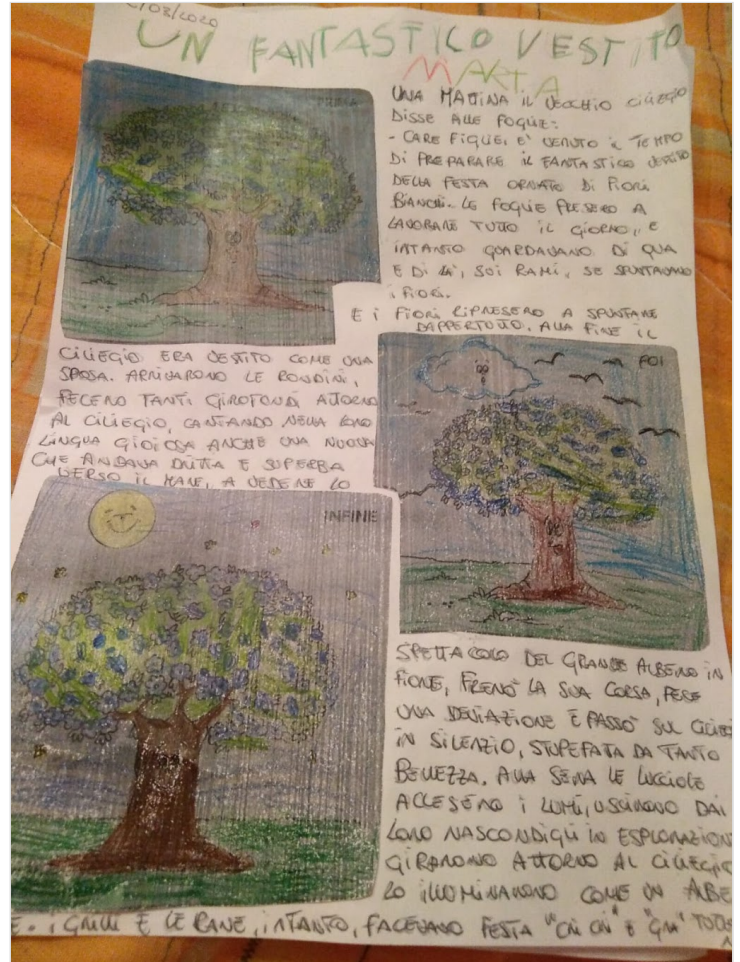 /03/2020
UN FANTASTICO VESTITO
MARTA
PRIMA
UNA MATTINA IL VECCHIO CILIEGIO
DISSE ALLE FOGLIE:
- CARE FIGLIE, E' VENUTO IL TEMPO
DI PREPARARE IL FANTASTICO VESTITO
DELLA FESTA ORNATE DI FIORI
BIANCHI. LE FOGLIE PRESERO A
LAVORARE TUTTO IL GIORNO, E
INTANTO GUARDAVANO DI QUA
E DI LA', SUI RAMI, SE SPUNTAVANO
I FIORI.
E I FIORI RIPRESERO A SPUNTARE
DAPPERTUTTO. ALLA FINE IL
CILIEGIO ERA VESTITO COME UNA
SPOSA. ARRIVARONO LE RONDINI,
FECERO TANTI GIROTONDI ATTORNO
AL CILIEGIO, CANTANDO NELLA LORO
LINGUA GIOIOSA ANCHE UNA NUOVA
CHE ANDAVA DRITTA E SUPERBA
VERSO IL MARE, A VEDERE LO
POI
INFINE
SPETTACOLO DEL GRANDE ALBERO IN
FIORE, FRENO' LA SUA CORSA, FECE
UNA DEVIAZIONE E PASSO' SUL CILIEG
IN SILENZIO, STUPEFATA DA TANTO
BELLEZZA. ALLA SERA LE LUCCIOLE
ACCESERO I LUMI, USCIRONO DAI
LORO NASCONDIGLI IN ESPLORAZION
GIRARONO ATTORNO AL CILIEGIO
LO ILLUMINARONO COME UN ALBE
E. I GRILLI E LE RANE, INTANTO, FACEVANO FESTA "CRI CRI" E "GRA"